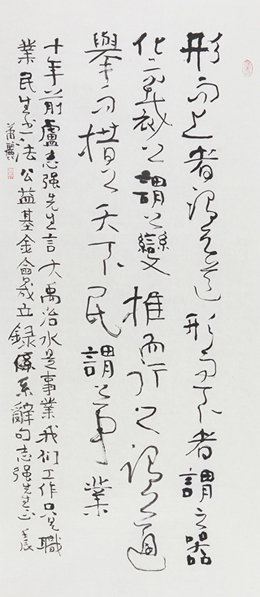 形而上者謂之道形而下者謂之器
化而裁之謂之變推而行之謂之通
舉而措之天下民謂之事業
十年前盧志强先生言大禹治水是事業我们工作只是職
業民生書法公益基金會成立録系辭句志强先生正